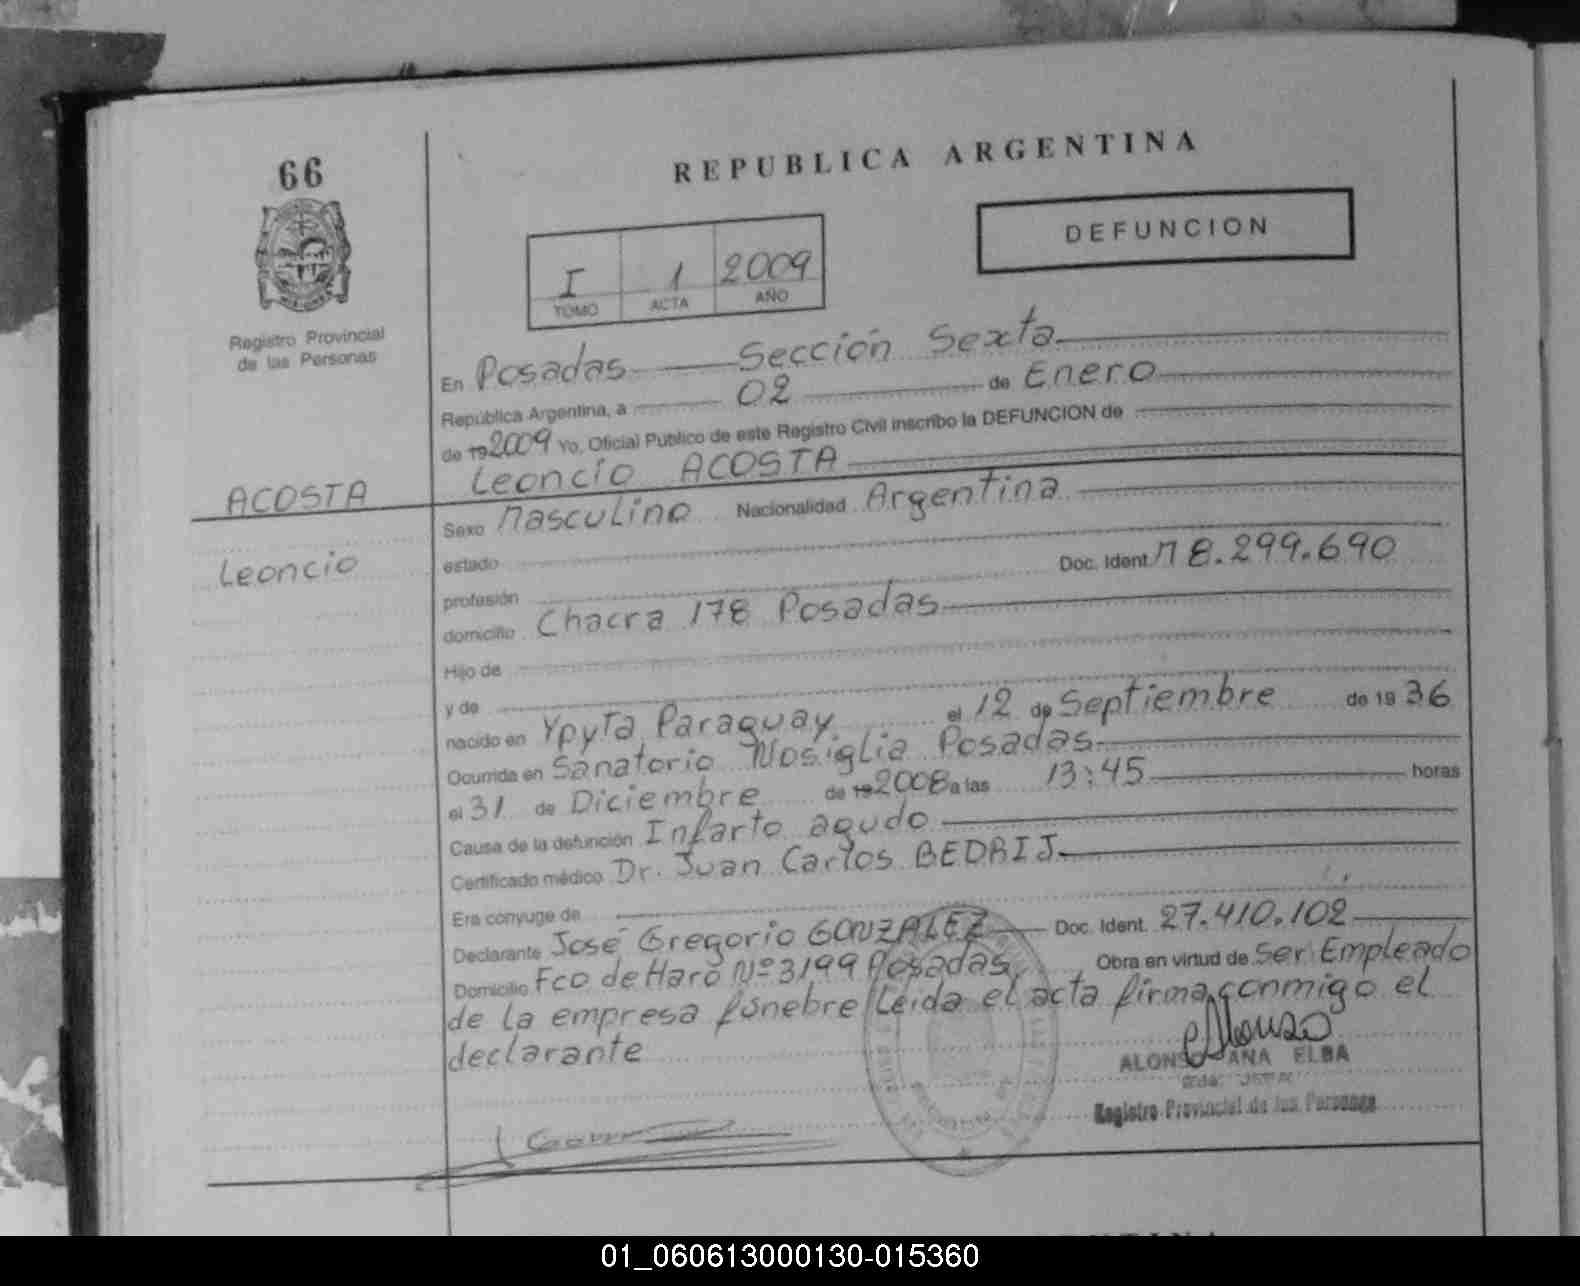 66
REPUBLICA ARGENTINA
DEFUNCION
I 1 2009
TOMO ACTA AÑO
Registro Provincial
de las Personas
En Posadas Sección Sexta
República Argentina, a 02 de Enero
de 192009 Yo, Oficial Público de este Registro Civil inscribo la DEFUNCION de
Leoncio ACOSTA
ACOSTA
Leoncio
Sexo Masculino Nacionalidad Argentina
estado
profesión Doc. Ident. M 8.299.690
domicilio Chacra 178 Posadas
Hijo de
y de
nacido en Ypyta Paraguay el 12 de Septiembre de 19 36
Ocurrida en Sanatorio Nosiglia Posadas
el 31 de Diciembre de 192008 a las 13:45 horas
Causa de la defunción Infarto agudo
Certificado médico Dr. Juan Carlos BEDRIJ
Era conyuge de
Declarante José Gregorio GONZALEZ Doc. Ident. 27.410.102
Domicilio Fco de Haro Nº 3199 Posadas Obra en virtud de Ser Empleado
de la empresa fúnebre Leida el acta firma conmigo el
declarante
ALONSO ANA ELBA
Registro Provincial de las Personas
01_060613000130-015360